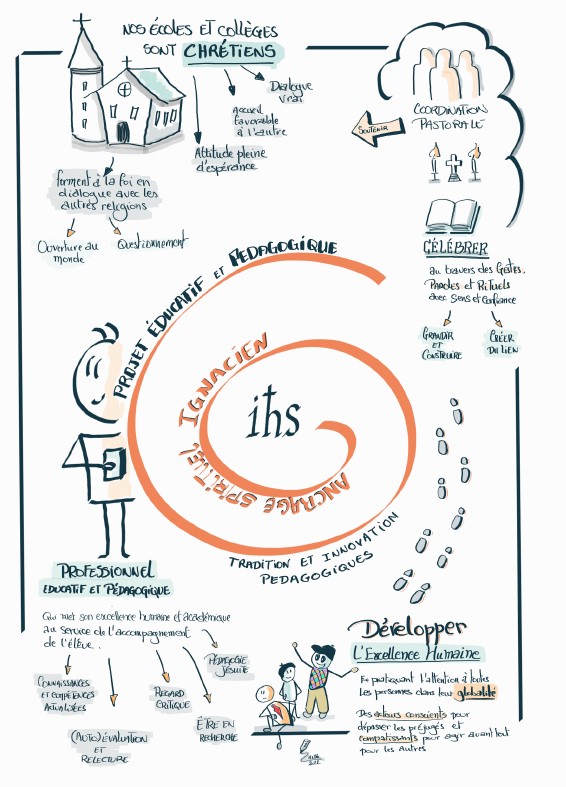 NOS ÉCOLES ET COLLÈGES
SONT CHRÉTIENS
Dialogue
vrai
Accueil
favorable
à l'autre
Attitude pleine
d'espérance
ferment à la foi en
dialogue avec les
autres religions
Ouverture au
monde
Questionnement
COORDINATION
PASTORALE
SOUTENIR
CÉLÉBRER
au travers des Gestes,
Paroles et Rituels
avec Sens et Confiance
GRANDIR
ET
CONSTRUIRE
CRÉER
DU LIEN
PROJET ÉDUCATIF ET PEDAGOGIQUE
ANCRAGE SPIRITUEL IGNACIEN
ihs
TRADITION ET INNOVATION
PEDAGOGIQUES
PROFESSIONNEL
EDUCATIF ET PÉDAGOGIQUE
Qui met son excellence humaine et académique
au service de l'accompagnement
de l'élève.
CONNAISSANCES
ET COMPÉTENCES
ACTUALISÉES
(AUTO) ÉVALUATION
ET
RELECTURE
REGARD
CRITIQUE
ÊTRE EN
RECHERCHE
PÉDAGOGIE
JÉSUITE
Développer
L'Excellence Humaine
En pratiquant l'attention à toutes
les personnes dans leur globalité
Des acteurs conscients pour
dépasser les préjugés et
compatissants pour agir avant tout
pour les autres